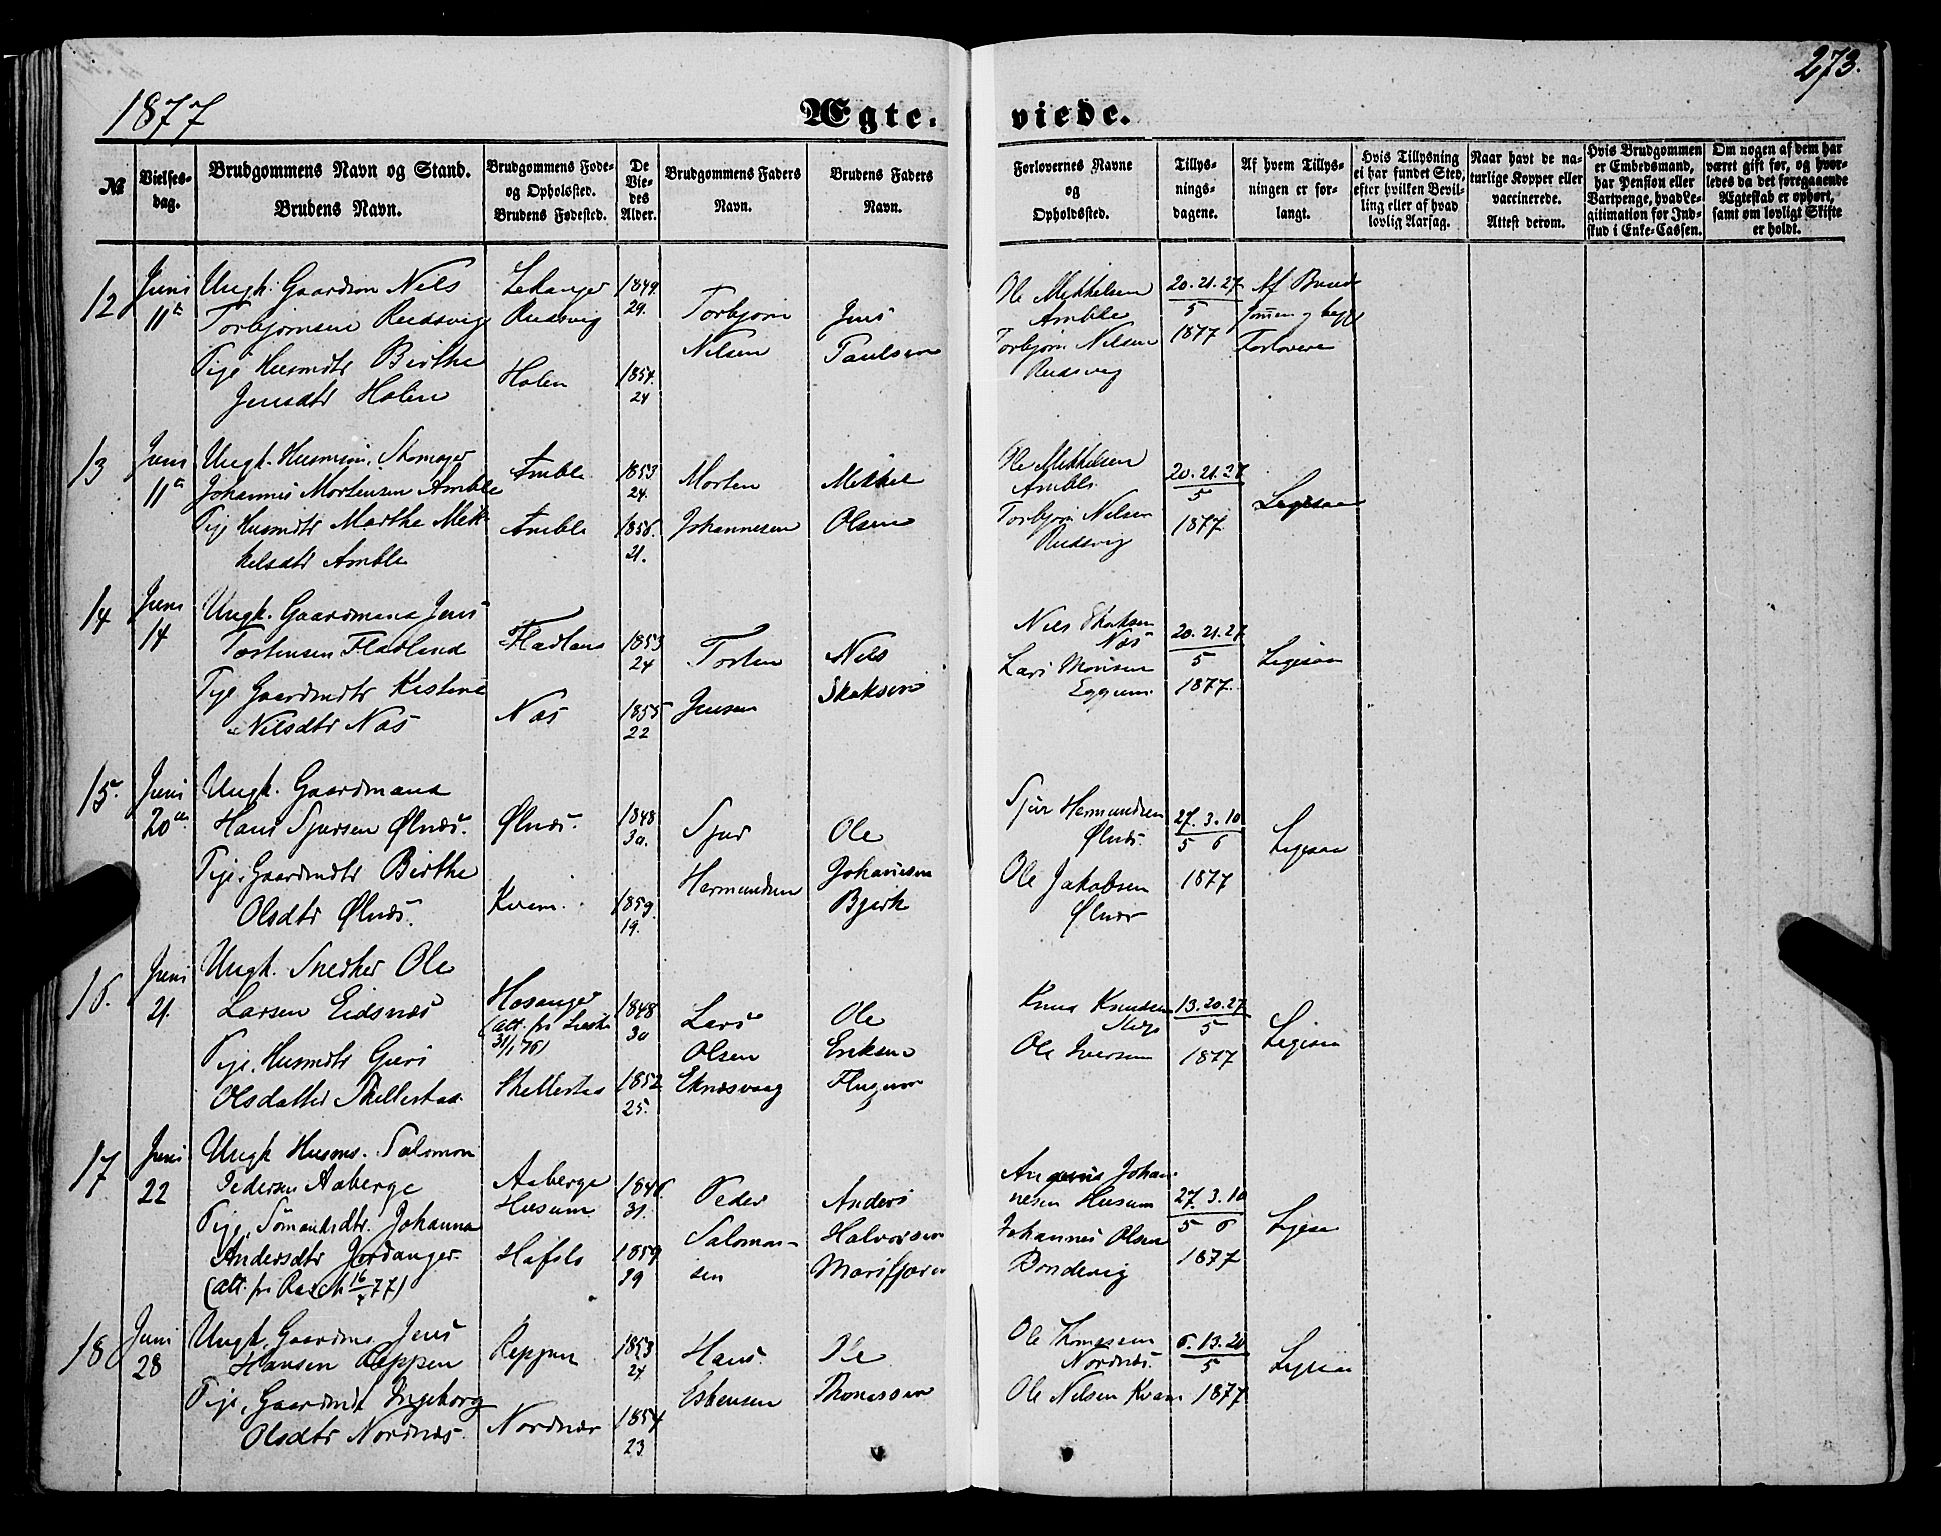 1877
Ægte-
viede.
273.
№
Vielses-
dag.
Brudgommens Navn og Stand.
Brudens Navn.
Brudgommens Føde-
og Opholdssted.
Brudens Fødested.
De
Vie-
des
Alder.
Brudgommens Faders
Navn.
Brudens Faders
Navn.
Forlovernes Navne
og
Opholdssted.
Tillys-
nings-
dagene.
Af hvem Tillys-
ningen er for-
langt.
Hvis Tillysning
ei har fundet Sted,
efter hvilken Bevil-
ling eller af hvad
lovlig Aarsag.
Naar havt de na-
turlige Kopper eller
vaccinerede.
Attest derom.
Hvis Brudgommen
er Embedsmand,
har Pension eller
Vartpenge, hvad Le-
gitimation for Ind-
skud i Enke-Cassen.
Om nogen af dem har
været gift før, og hvor-
ledes da det foregaaende
Ægteskab er ophørt,
samt om lovligt Skifte
er holdt.
12
Juni
11te
Ungk. Gaardm Nils
Torbjørnsen Rudsvig
Pige Husmdtr Birthe
Jensdtr Holen
Lekanger
Rudsvig
Holen
1849.
29.
1854.
24
Torbjørn
Nilsen
Jens
Paulsen
Ole Mikkelsen
Amble
Torbjørn Nilsen
Rudsvig
20. 21. 27
5
1877
Af Brud-
gommen og begge
Forlovere
13
Juni
11te
Ungk. Husmon. Skomager
Johannes Mortensen Amble
Pige Husmdtr Marthe Mik-
kelsdtr Amble
Amble
Amble
1853
24.
1856.
21.
Morten
Johannesen
Mikkel
Olsen
Ole Mikkelsen
Amble
Torbjørn Nilsen
Rudsvig
20. 21. 27
5
1877.
Ligesaa
14
Juni
14
Ungk. Gaardmand Jens
Torstensen Fladland
Pige Gaardmdtr Kistine
Nilsdtr Næs
Fladland
Næs
1853
24
1855
22
Torsten
Jensen
Nils
Skaksen
Nils Skaksen
Næs
Lars Monsen
Eggum
20. 21. 27
5
1877.
Ligesaa
15.
Juni
20de
Ungk. Gaardmand
Hans Sjursen Ølnæs.
Pige, Gaardmdtr Birthe
Olsdtr Ølnæs.
Ølnæs.
Kvam.
1848
30.
1859.
19.
Sjur
Hermundsen
Ole
Johanesen
Bjerk
Sjur Hermundsen
Ølnæs.
Ole Jakobsen
Ølnæs
27. 3. 10
5 6
1877
Ligesaa
16.
Juni
21.
Ungk. Snedker Ole
Larsen Eidsnæs
Pige, Husmdtr Guri
Olsdatter Skellestad
Hosanger
31/1 76)
Skellestad
1848
30
1852
25.
Lars
Olsen
Eknæsvaag
Ole
Eriksen
Knud Knudsen
Ole Iversen
13. 20. 27
5
1877
Ligesaa
17
Juni
22
Ungk Husms. Salomon
Pedersen Aaberge
Pige, Sömandsdtr. Johanna
Andersdtr Jordanger
(att. fr. Rasch 16/4 77)
Aaberge
Husum
Hafslo
1846
31.
1859
29
Peder
Salomon-
sen
Anders
Halvorsen
Marifjæren
Johan-
nesen Husum
Johannes Olsen
Bondevig
27. 3. 10
5 6
1877
Ligesaa
18
Juni
28
Ungk. Gaardms. Jens
Hansen Reppen
Pige, Gaardmdt Ingeborg
Olsdtr Nordnæs.
Reppen
Nordnæs
1853
24.
1854
23
Hans
Esbensen
Ole
Thomassen
Ole Thomassen
Nordnæs.
Ole Nilsen Kvam
6. 13. 20
5
1877
Ligesaa